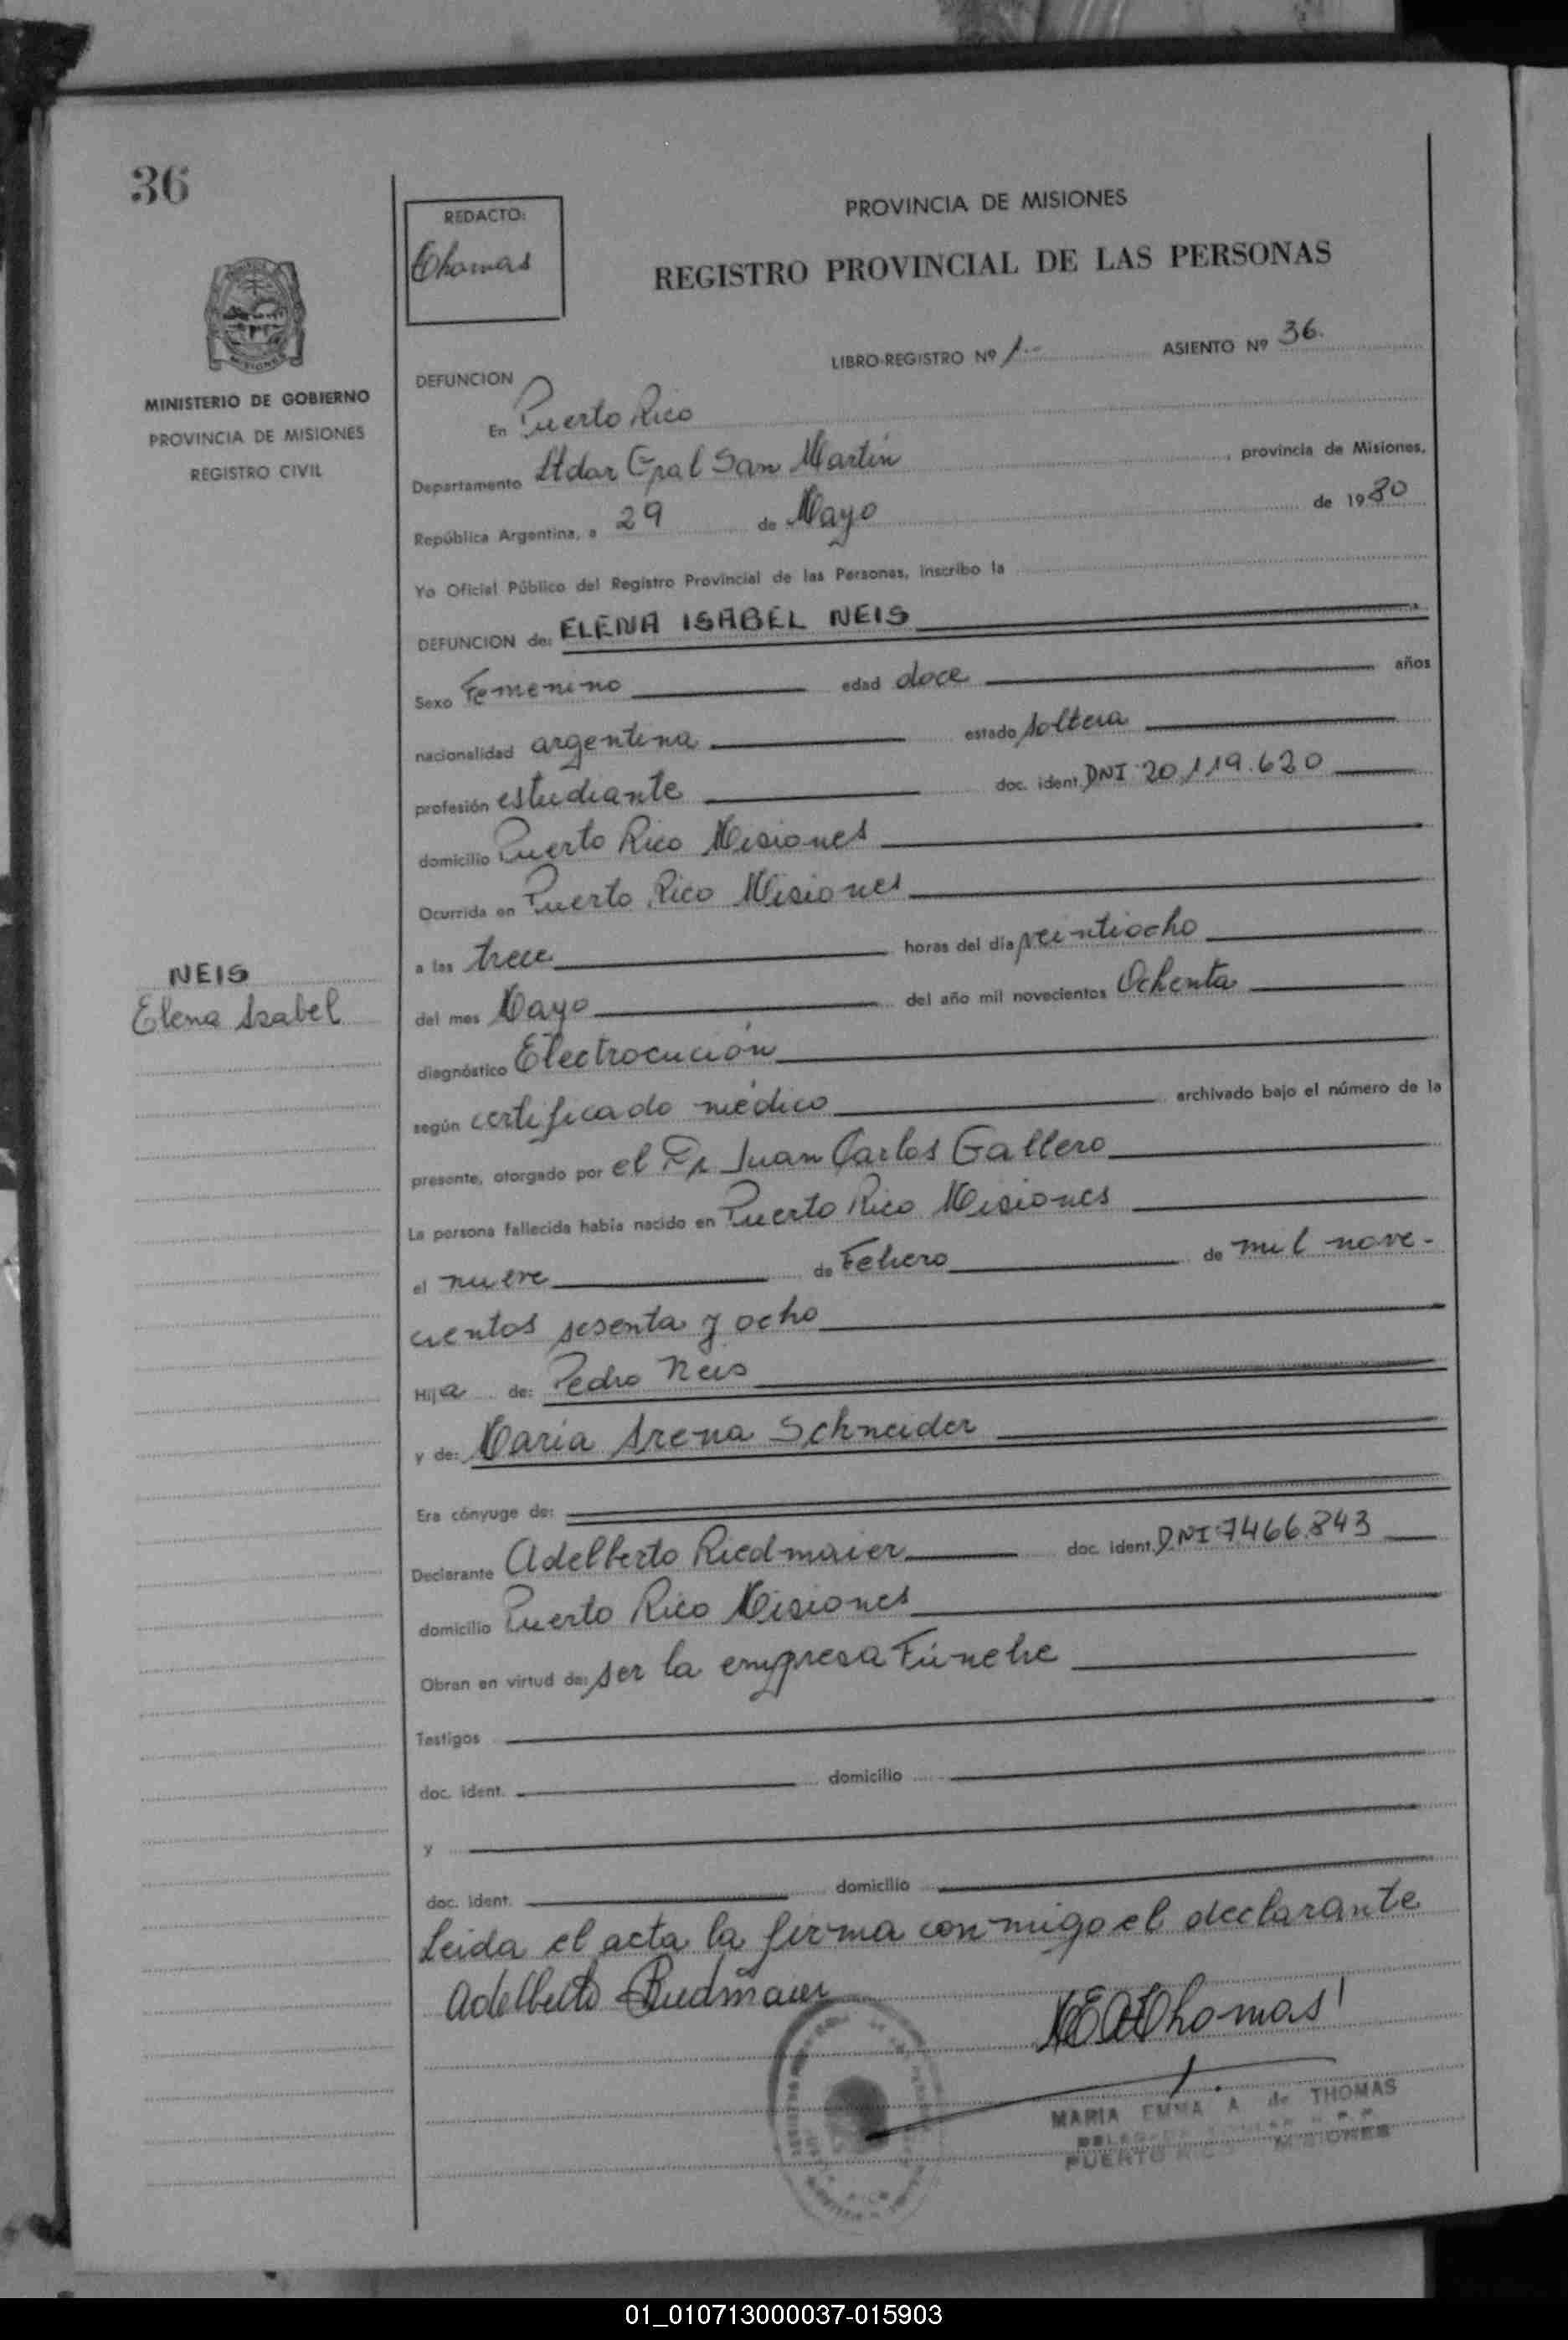 36
REDACTO:
Thomas
PROVINCIA DE MISIONES
REGISTRO PROVINCIAL DE LAS PERSONAS
MINISTERIO DE GOBIERNO
PROVINCIA DE MISIONES
REGISTRO CIVIL
LIBRO-REGISTRO Nº 1.- ASIENTO Nº 36.
DEFUNCION
En Puerto Rico
Departamento Ltdor Gral San Martín, provincia de Misiones,
República Argentina, a 29 de Mayo de 1980
Yo Oficial Público del Registro Provincial de las Personas, inscribo la
DEFUNCION de: ELENA ISABEL NEIS
Sexo Femenino edad doce años
nacionalidad argentina estado soltera
profesión estudiante doc. ident. DNI 20.119.620
domicilio Puerto Rico Misiones
Ocurrida en Puerto Rico Misiones
a las trece horas del día veintiocho
NEIS
Elena Isabel
del mes Mayo del año mil novecientos Ochenta
diagnóstico Electrocución
según certificado médico archivado bajo el número de la
presente, otorgado por el Dr Juan Carlos Gallero
La persona fallecida había nacido en Puerto Rico Misiones
el nueve de Febrero de mil nove-
cientos sesenta y ocho
Hija de: Pedro Neis
y de: María Irena Schneider
Era cónyuge de:
Declarante Adelberto Riedmaier doc. ident. DNI 7466.843
domicilio Puerto Rico Misiones
Obran en virtud de: ser la empresa Fúnebre
Testigos
doc. ident. domicilio
y
doc. ident. domicilio
Leida el acta la firma conmigo el declarante
Adelberto Riedmaier
Thomas
MARIA EMMA A. de THOMAS
PUERTO RICO MISIONES
01_010713000037-015903